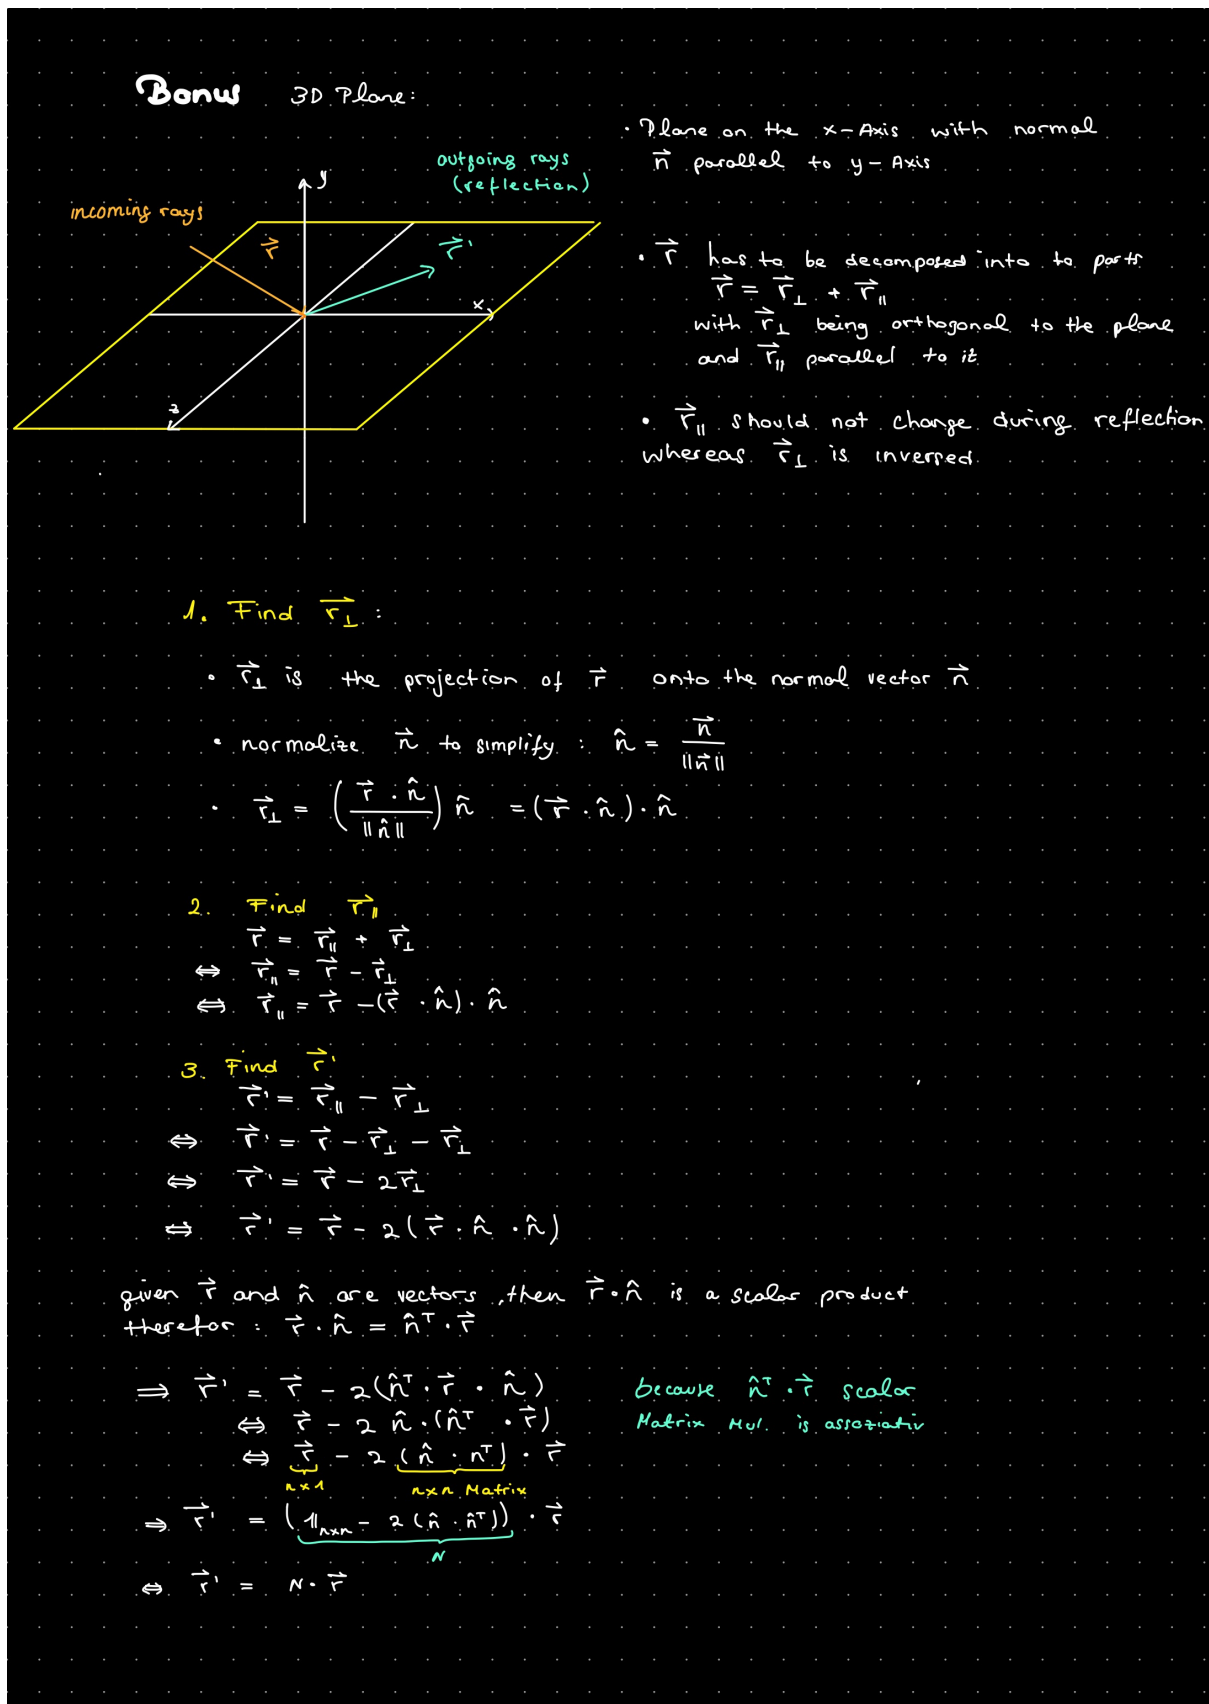 Bonus 3D Plane:
• Plane on the x-Axis with normal
n⃗ parallel to y-Axis
outgoing rays
(reflection)
incoming rays
y
r⃗
r⃗'
x
z
• r⃗ has to be decomposed into to parts
r⃗ = r⃗⊥ + r⃗∥
with r⃗⊥ being orthogonal to the plane
and r⃗∥ parallel to it
• r⃗∥ should not change during reflection
whereas r⃗⊥ is inversed
1. Find r⃗⊥ :
• r⃗⊥ is the projection of r⃗ onto the normal vector n⃗
• normalize n⃗ to simplify : n̂ = n⃗ / ||n⃗||
• r⃗⊥ = ( r⃗ · n̂ / ||n̂|| ) n̂ = (r⃗ · n̂) · n̂
2. Find r⃗∥
r⃗ = r⃗∥ + r⃗⊥
⇔ r⃗∥ = r⃗ − r⃗⊥
⇔ r⃗∥ = r⃗ − (r⃗ · n̂) · n̂
3. Find r⃗'
r⃗' = r⃗∥ − r⃗⊥
⇔ r⃗' = r⃗ − r⃗⊥ − r⃗⊥
⇔ r⃗' = r⃗ − 2r⃗⊥
⇔ r⃗' = r⃗ − 2(r⃗ · n̂ · n̂)
given r⃗ and n̂ are vectors, then r⃗ · n̂ is a scalar product
therefor : r⃗ · n̂ = n̂ᵀ · r⃗
⇒ r⃗' = r⃗ − 2(n̂ᵀ · r⃗ · n̂) because n̂ᵀ · r⃗ scalar
⇔ r⃗ − 2 n̂ · (n̂ᵀ · r⃗) Matrix Mul. is assoziativ
⇔ r⃗ − 2 (n̂ · nᵀ) · r⃗
n×1 n×n Matrix
⇒ r⃗' = (𝟙n×n − 2 (n̂ · n̂ᵀ)) · r⃗
N
⇔ r⃗' = N · r⃗